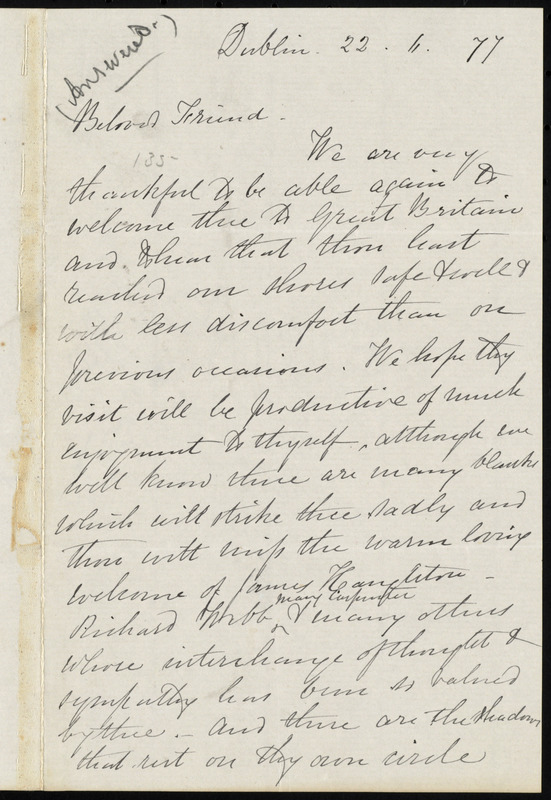 (Answered.)
Dublin. 22. 6. 77
Beloved Friend -
135-
We are very
thankful to be able again to
welcome thee to Great Britain
and to hear that thou hast
reached our shores safe & well &
with less discomfort than on
previous occasions. We hope thy
visit will be productive of much
enjoyment to thyself, although we
well know there are many blanks
which will strike thee sadly and
thou wilt miss the warm loving
welcome of James Haughton -
Mary Carpenter
Richard Webb, & many others
whose interchange of thought &
sympathy has been so valued
by thee. - And there are the shadows
that rest on thy own circle